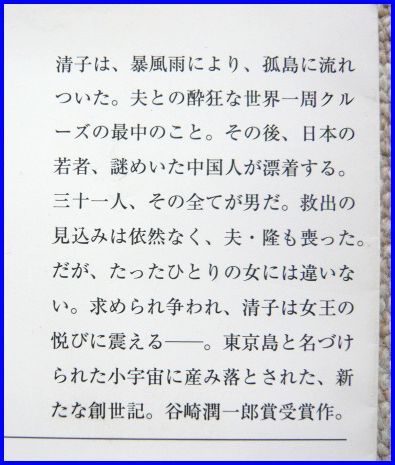 清子は、暴風雨により、孤島に流れ
ついた。夫との酔狂な世界一周クル
ーズの最中のこと。その後、日本の
若者、謎めいた中国人が漂着する。
三十一人、その全てが男だ。救出の
見込みは依然なく、夫・隆も喪った。
だが、たったひとりの女には違いな
い。求められ争われ、清子は女王の
悦びに震える――。東京島と名づけ
られた小宇宙に産み落とされた、新
たな創世記。谷崎潤一郎賞受賞作。